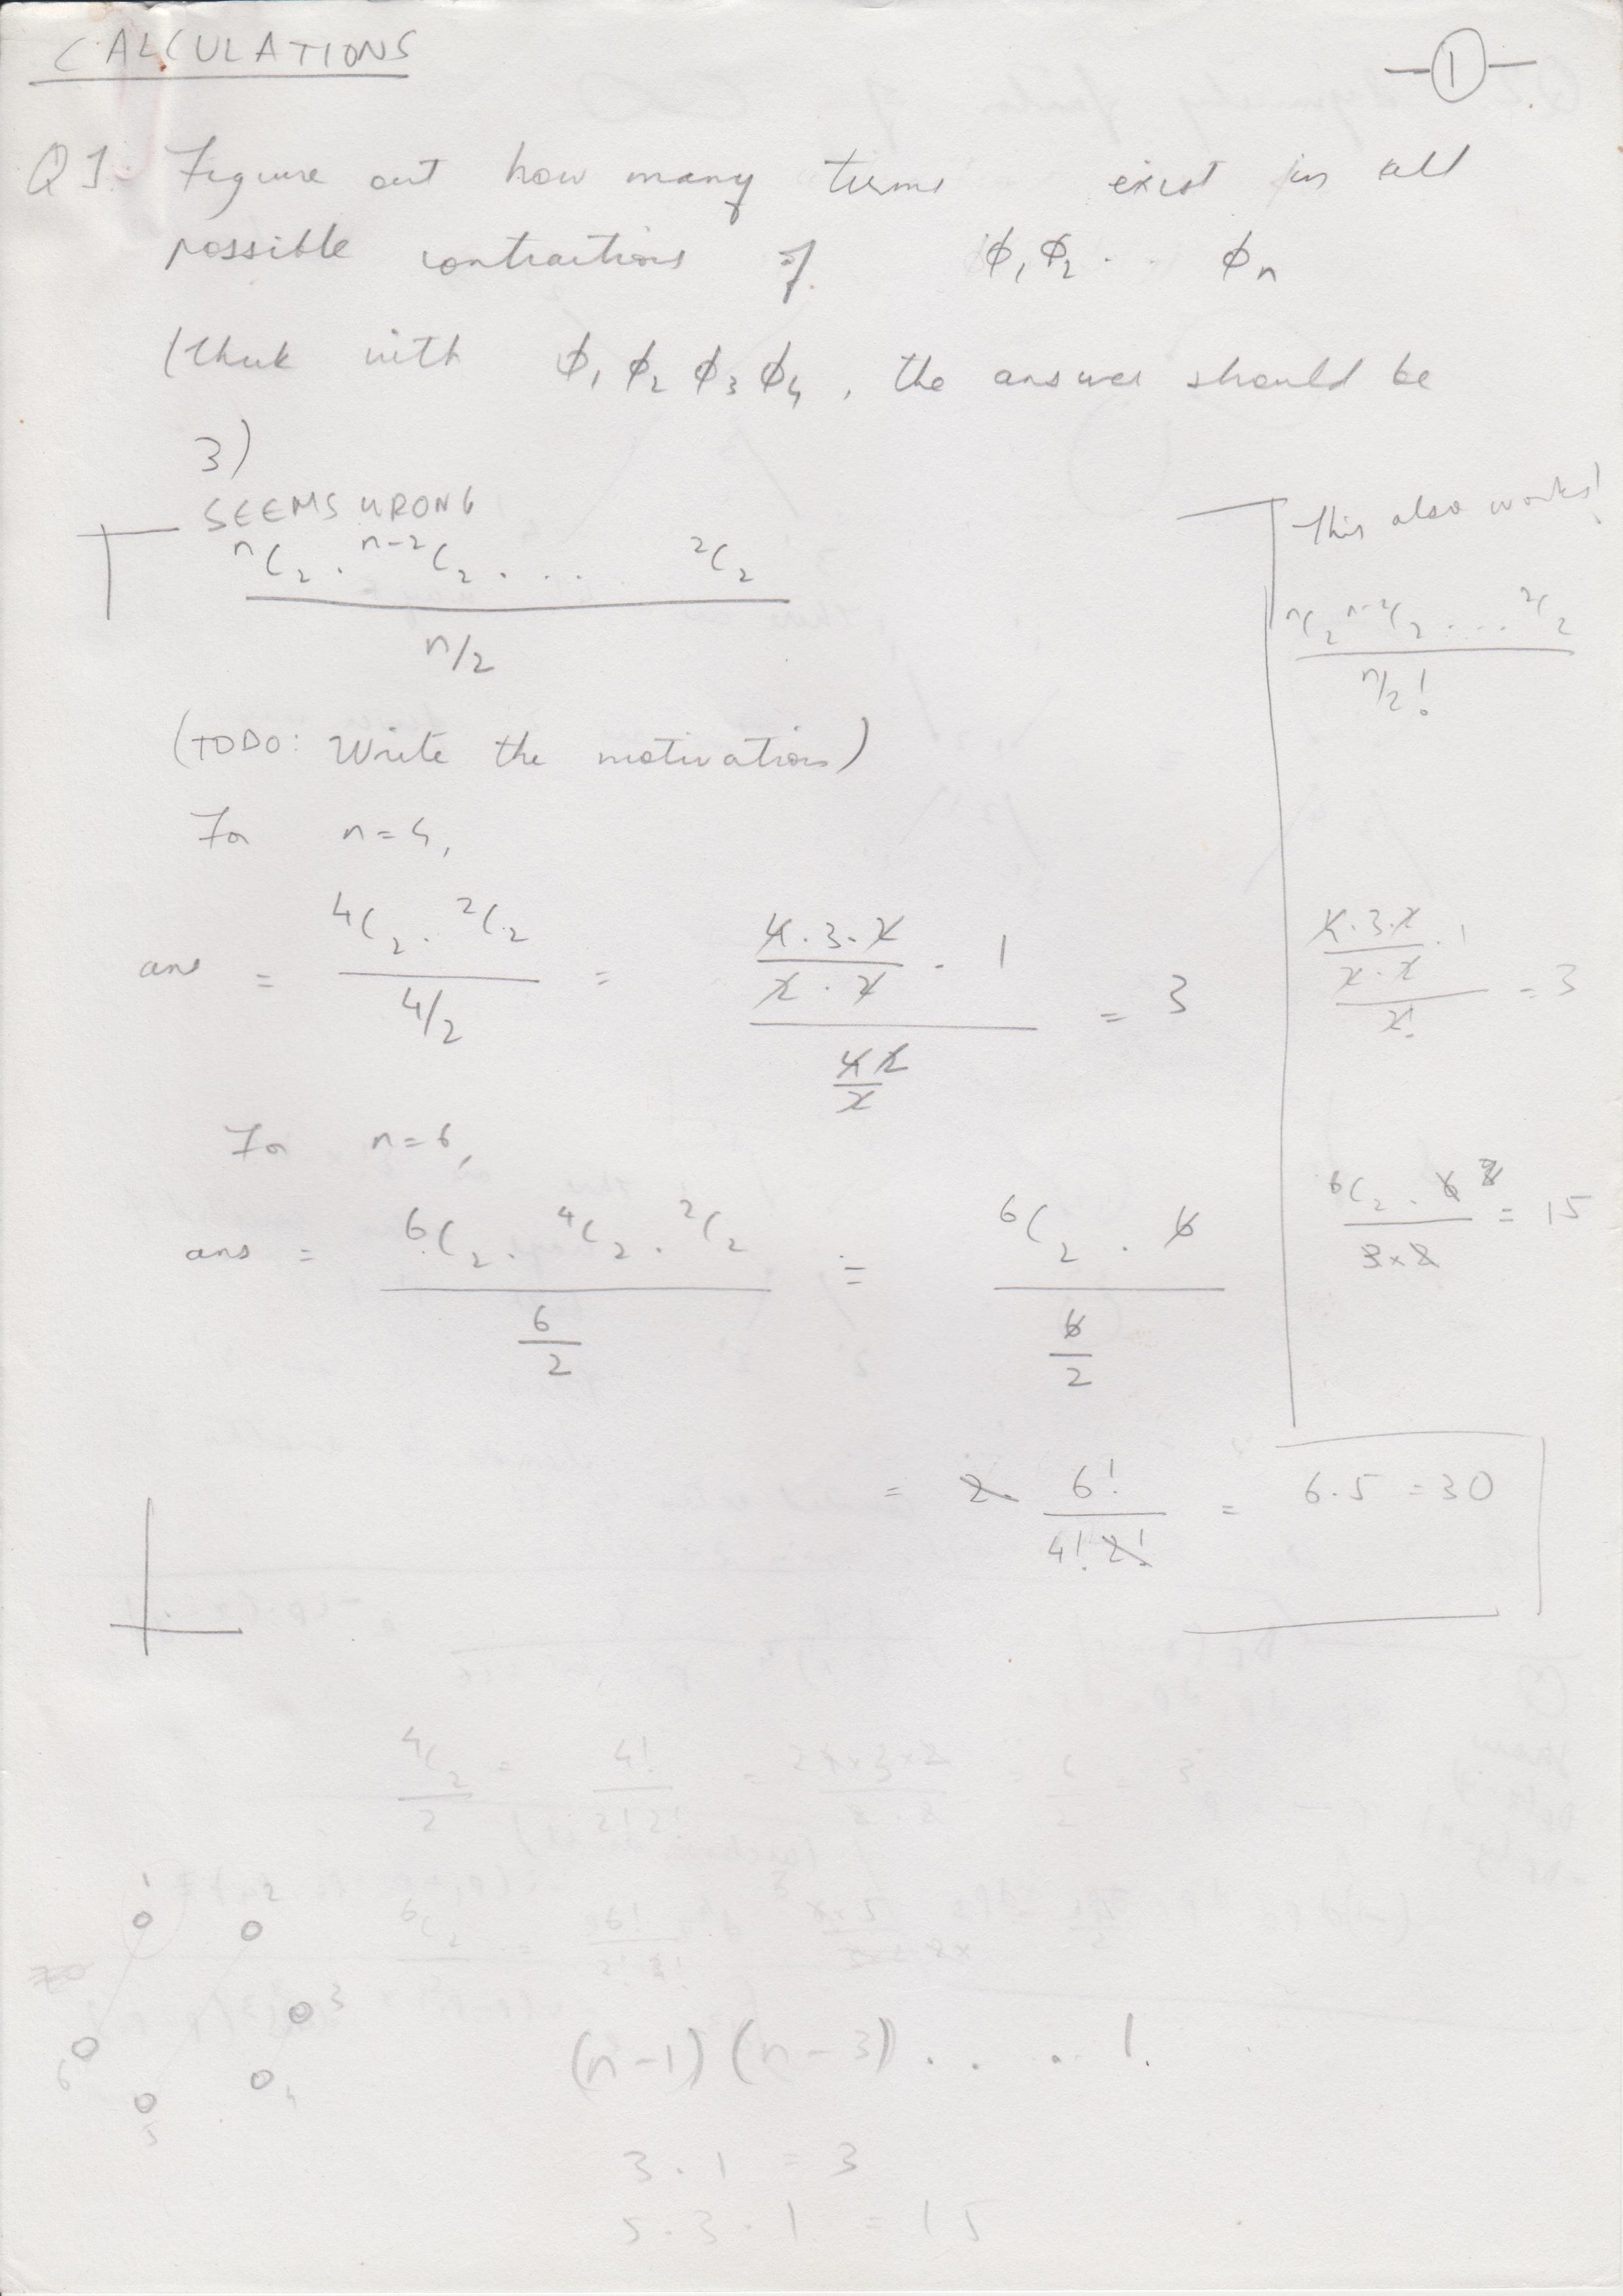 CALCULATIONS
1
Q1. Figure out how many terms exist in all
possible contractions of ϕ₁ϕ₂ . . . ϕₙ
(think with ϕ₁ ϕ₂ ϕ₃ ϕ₄, the answer should be
3)
SEEMS WRONG
ⁿC₂ . ⁿ⁻²C₂ . . . . ²C₂
n/2
(TODO: Write the motivation)
For n=4,
ans = (⁴C₂ . ²C₂) / (4/2) = ((4.3.2)/(2.2) . 1) / (4/2) = 3
For n=6,
ans = (⁶C₂ . ⁴C₂ . ²C₂) / (6/2) = (⁶C₂ . 6) / (6/2)
= 2. 6!/(4! 2!) = 6.5 = 30
This also works!
ⁿC₂ ⁿ⁻²C₂ . . . ²C₂
n/2!
((4.3.2)/(2.2) . 1) / 2! = 3
(⁶C₂ . 6) / (3×2) = 15
⁴C₂/2 = 4!/(2!2!) = = 6/2 = 3
⁶C₂ = 6!
1 2
3
6 4
5
(n-1) (n-3) . . . . 1.
3 . 1 = 3
5 . 3 . 1 = 15